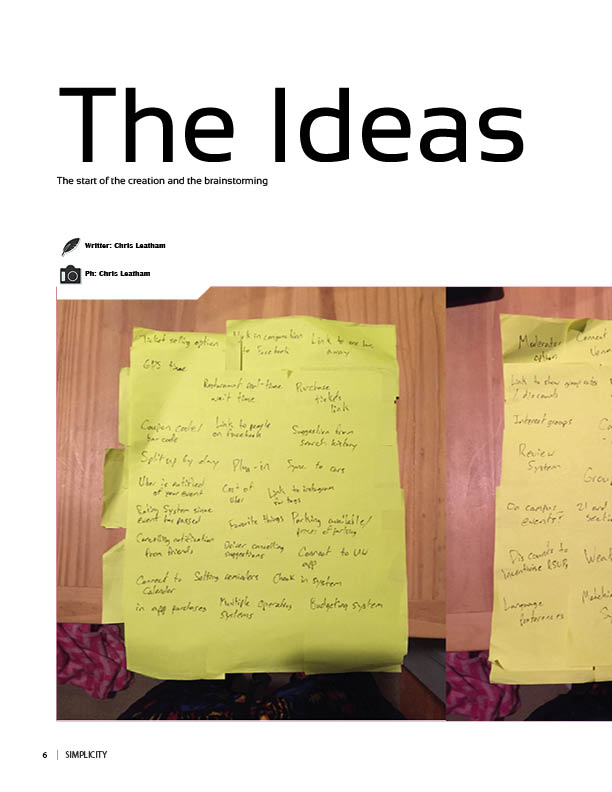 The Ideas
The start of the creation and the brainstorming
Writter: Chris Leatham
Ph: Chris Leatham
Ticket selling option
Work in conjunction
to Facebook
Link to
away
GPS
Restaurant real-time
wait time
Purchase
tickets
link
Coupon code/
bar code
Link to people
on facebook
Suggestion from
search history
Split up by day
Plug-in
Sync to cars
Uber is notified
of your event
Cost of
Uber
Link to instagram
tags
Rating System since
event has passed
Favorite things
Parking available/
prices of parking
Cancelling notification
from friends
Driver cancelling
suggestions
Connect to UW
app
Connect to
Calender
Setting reminders
Check in system
in app purchases
Multiple operating
systems
Budgeting system
Moderator
option
Connect
Link to show group rates
/ discounts
Interest groups
Review
System
Group
On campus
events?
21 and
secti
Discounts to
incentivise RSVPs
Weat
Language
preferences
Matchin
Sy
6 | SIMPLICITY